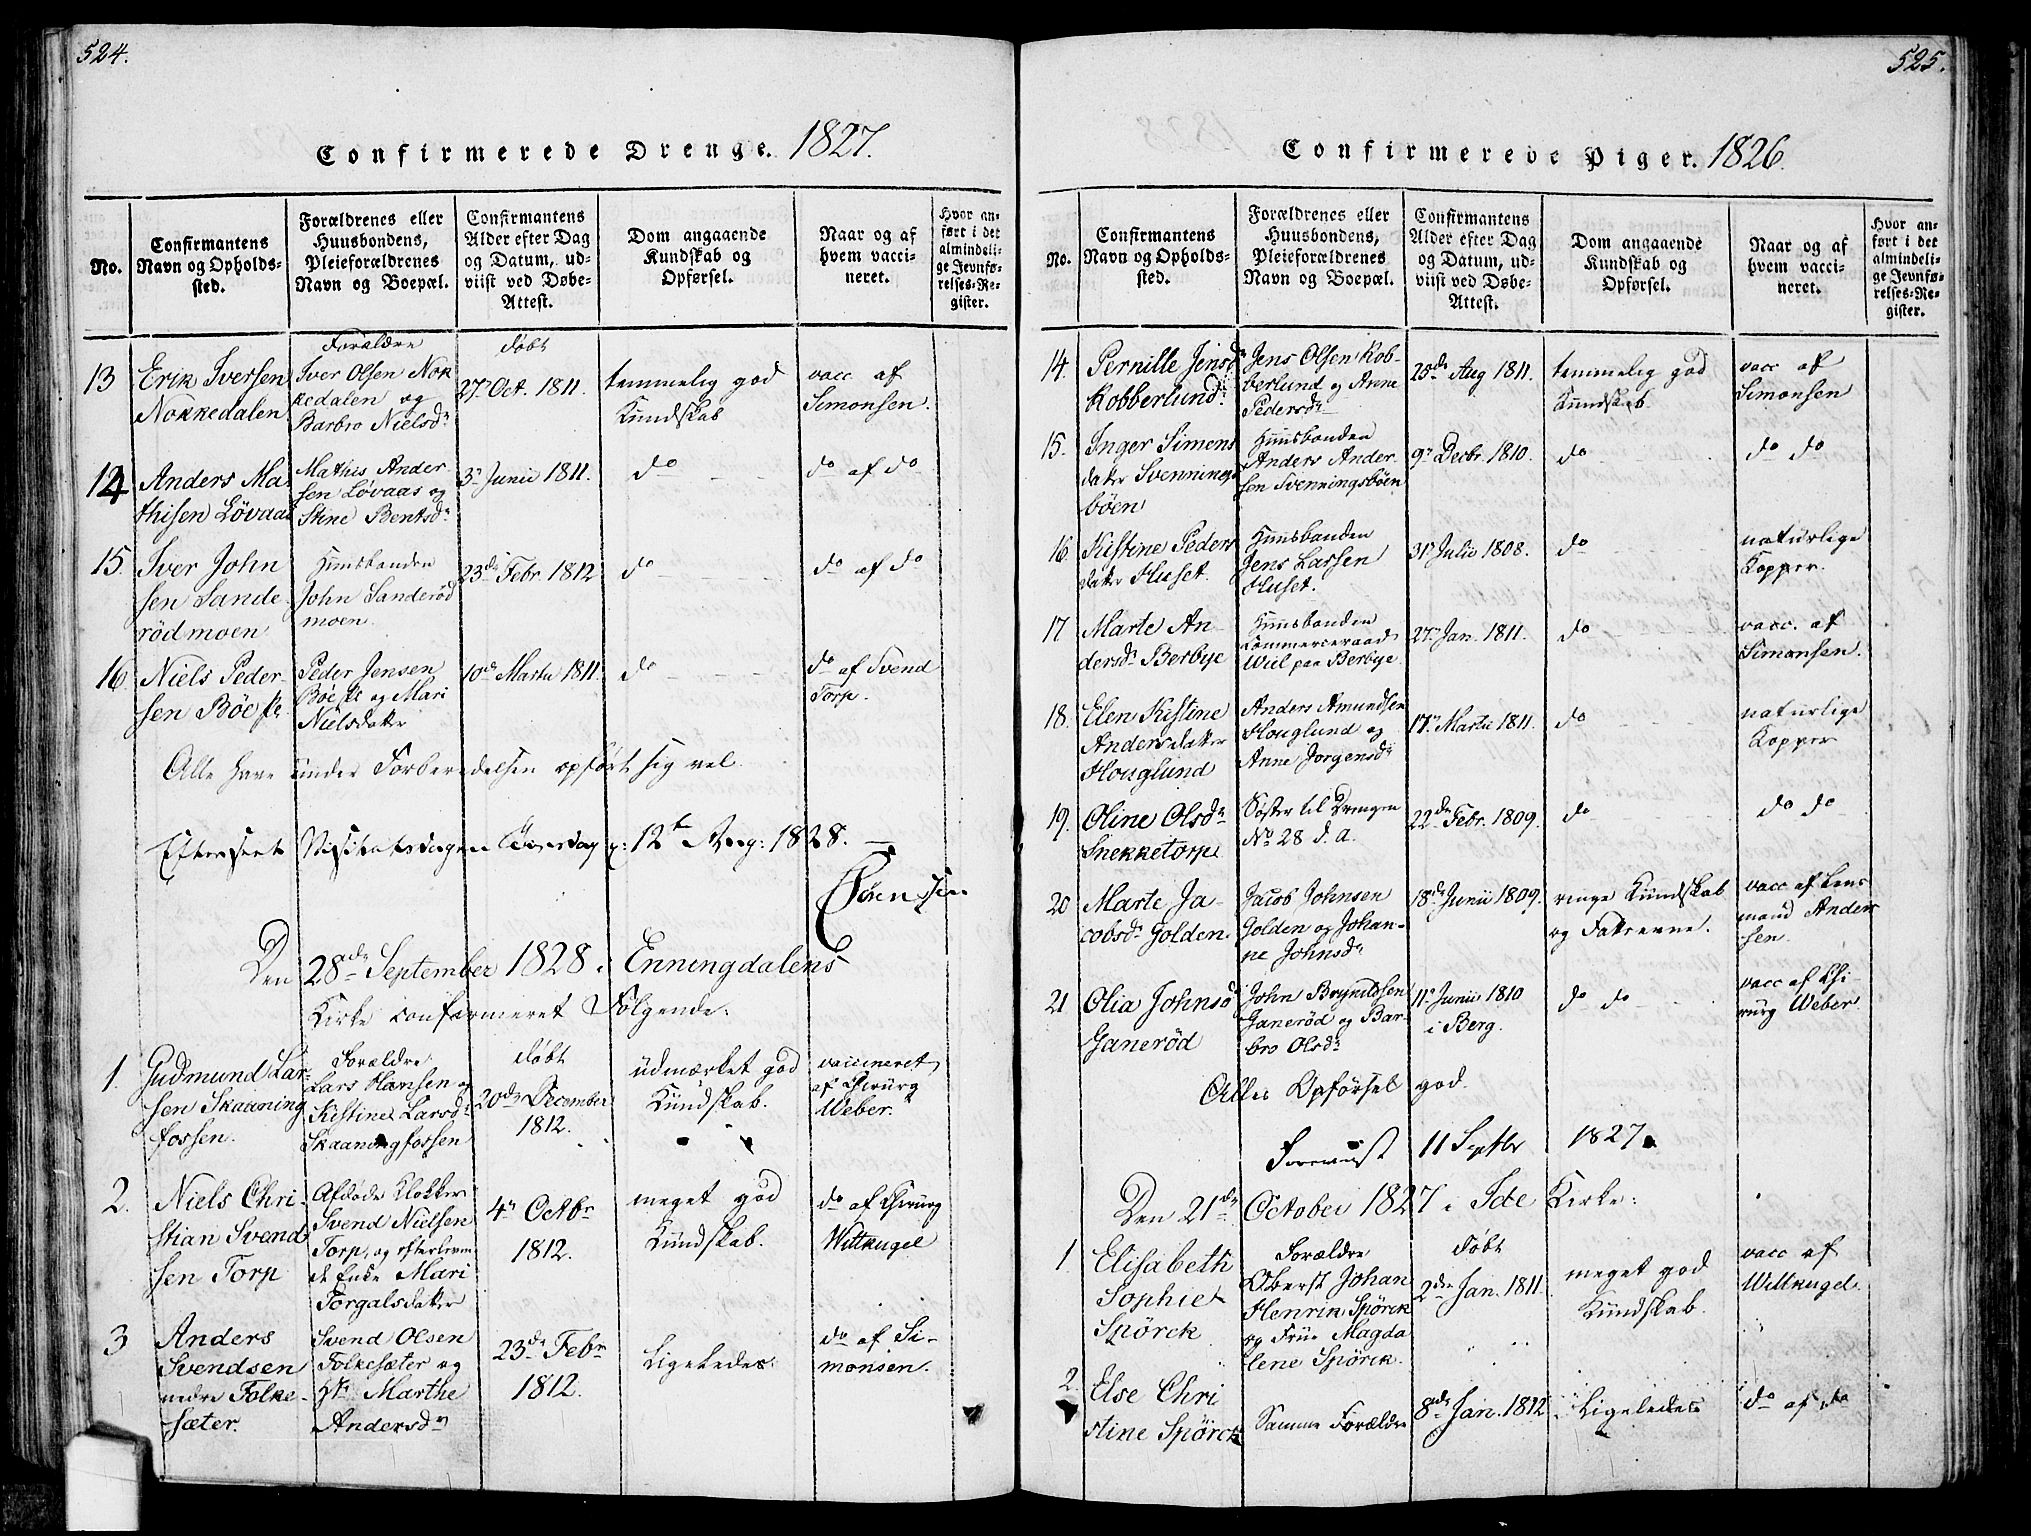 524.
Confirmerede Drenge. 1827.
No.
Confirmantens
Navn og Opholds-
sted.
Forældrenes eller
Huusbondens,
Pleieforældrenes
Navn og Boepæl.
Confirmantens
Alder efter Dag
og Datum, ud-
viist ved Døbe-
Attest.
Dom angaaende
Kundskab og
Opførsel.
Naar og af
hvem vacci-
neret.
Hvor an-
ført i det
almindeli-
ge Jevnfø-
relses-Re-
gister.
13
Erik Iversen
Nokkedalen
Forældre
Iver Olsen Nok
kedalen og
Barbro Nielsdr
døbt
27. Oct. 1811.
temmelig god
Kundskab
vacc af
Simonsen.
14
Anders Ma
thisen Løvaas
Mathis Ander
sen Løvaas og
Stine Bentsdr
3 Junii 1811.
do
do af do
15.
Iver John
sen Sande
rödmoen
Huusbonden
John Sanderöd
moen
23de Febr. 1812
do
do af do
16
Niels Peder-
sen Böe
Peder Jensen
Böe og Mari
Nielsdatter
10de Martii 1811.
do
do af Svend
Torp.
Alle have under Forberedelsen opført sig vel
Efterseet Visitatsdagen 12te Aug: 1828.
Sörensen
Den 28de September 1828 i Enningdalens
Kirke confirmeret Følgende:
1.
Gudmund Lar-
sen Skaaning
fossen.
Forældre
Lars Hansen og
Kistine Larsdr
Skaaningfossen
döbt
20de December
1812.
udmærket god
Kundskab.
vaccineret
af Chirurg
Weber.
2.
Niels Chri-
stian Svend
sen Torp
Afdøde Klokker
Svend Nielsen
Torp, og efterleven
de Enke Mari
Torgalsdatter
4de Octbr
1812.
meget god
Kundskab.
do af Chirurg
Wittkugel
3
Anders
Svendsen
nedre Folke-
sæter.
Svend Olsen
Folkesæter og
Marthe
Andersdr
23de Febr
1812.
Ligeledes.
do af Si-
monsen.
525.
Confirmerede Piger. 1826.
No.
Confirmantens
Navn og Opholds-
sted.
Forældrenes eller
Huusbondens,
Pleieforældrenes
Navn og Boepæl.
Confirmantens
Alder efter Dag
og Datum, ud-
viist ved Døbe-
Attest.
Dom angaaende
Kundskab og
Opførsel.
Naar og af
hvem vacci-
neret.
Hvor an-
ført i det
almindeli-
ge Jevnfø-
relses-Re-
gister.
14.
Pernille Jensdr
Kobberlund
Jens Olsen Kob-
berlund og Anne
Pedersdr
25de Aug 1811.
temmelig god
Kundskab
vacc af
Simonsen
15.
Inger Simens
datter Svennings
böen
Huusbonden
Anders Ander
sen Svenningsböen
9de Decbr. 1810.
do
do do
16
Kistine Peders
datter Huset.
Huusbonden
Jens Larsen
Huset.
31 Julii 1808.
do
naturlige
Kopper.
17
Marte An-
dersdr Berbye
Huusbonden
Commerceraad
Wiil paa Berbye
27 Jan. 1811.
do
vacc. af
Simonsen.
18.
Elen Kistine
Andersdatter
Houglund
Anders Amundsen
Houglund og
Anne Jorgensdr
17 Martii 1811.
do
naturlige
Kopper
19.
Oline Olsdr
Snekketorp
Søster til Drengen
No 28 d. a.
22de Febr. 1809.
do
do do
20
Marte Ja-
cobsdr Golden.
Jacob Johnsen
Golden og Johan-
ne Johnsdr
18de Junii 1809.
ringe Kundskab
og Fatteevne.
vacc af Lens
mand Ander
sen.
21
Olia Johnsdr
Ganeröd
John Brynildsen
Ganeröd og Bar-
bro Olsdr
11 Junii 1810
i Berg.
do do
vacc af Chi
rurg Weber.
Alles Opførsel god.
Foreviist 11 Septbr 1827.
Den 21de October 1827 i Idde Kirke:
1.
Elisabeth
Sophie
Spörck
Forældre
Oberst Johan
Henrik Spörck
og Frue Magda
lene Spörck.
döbt
2den Jan. 1811.
meget god
Kundskab.
vacc af
Wittkugel.
2
Else Chri
stine Spörck
Samme Forældre
8de Jan. 1812
Ligeledes
do af do